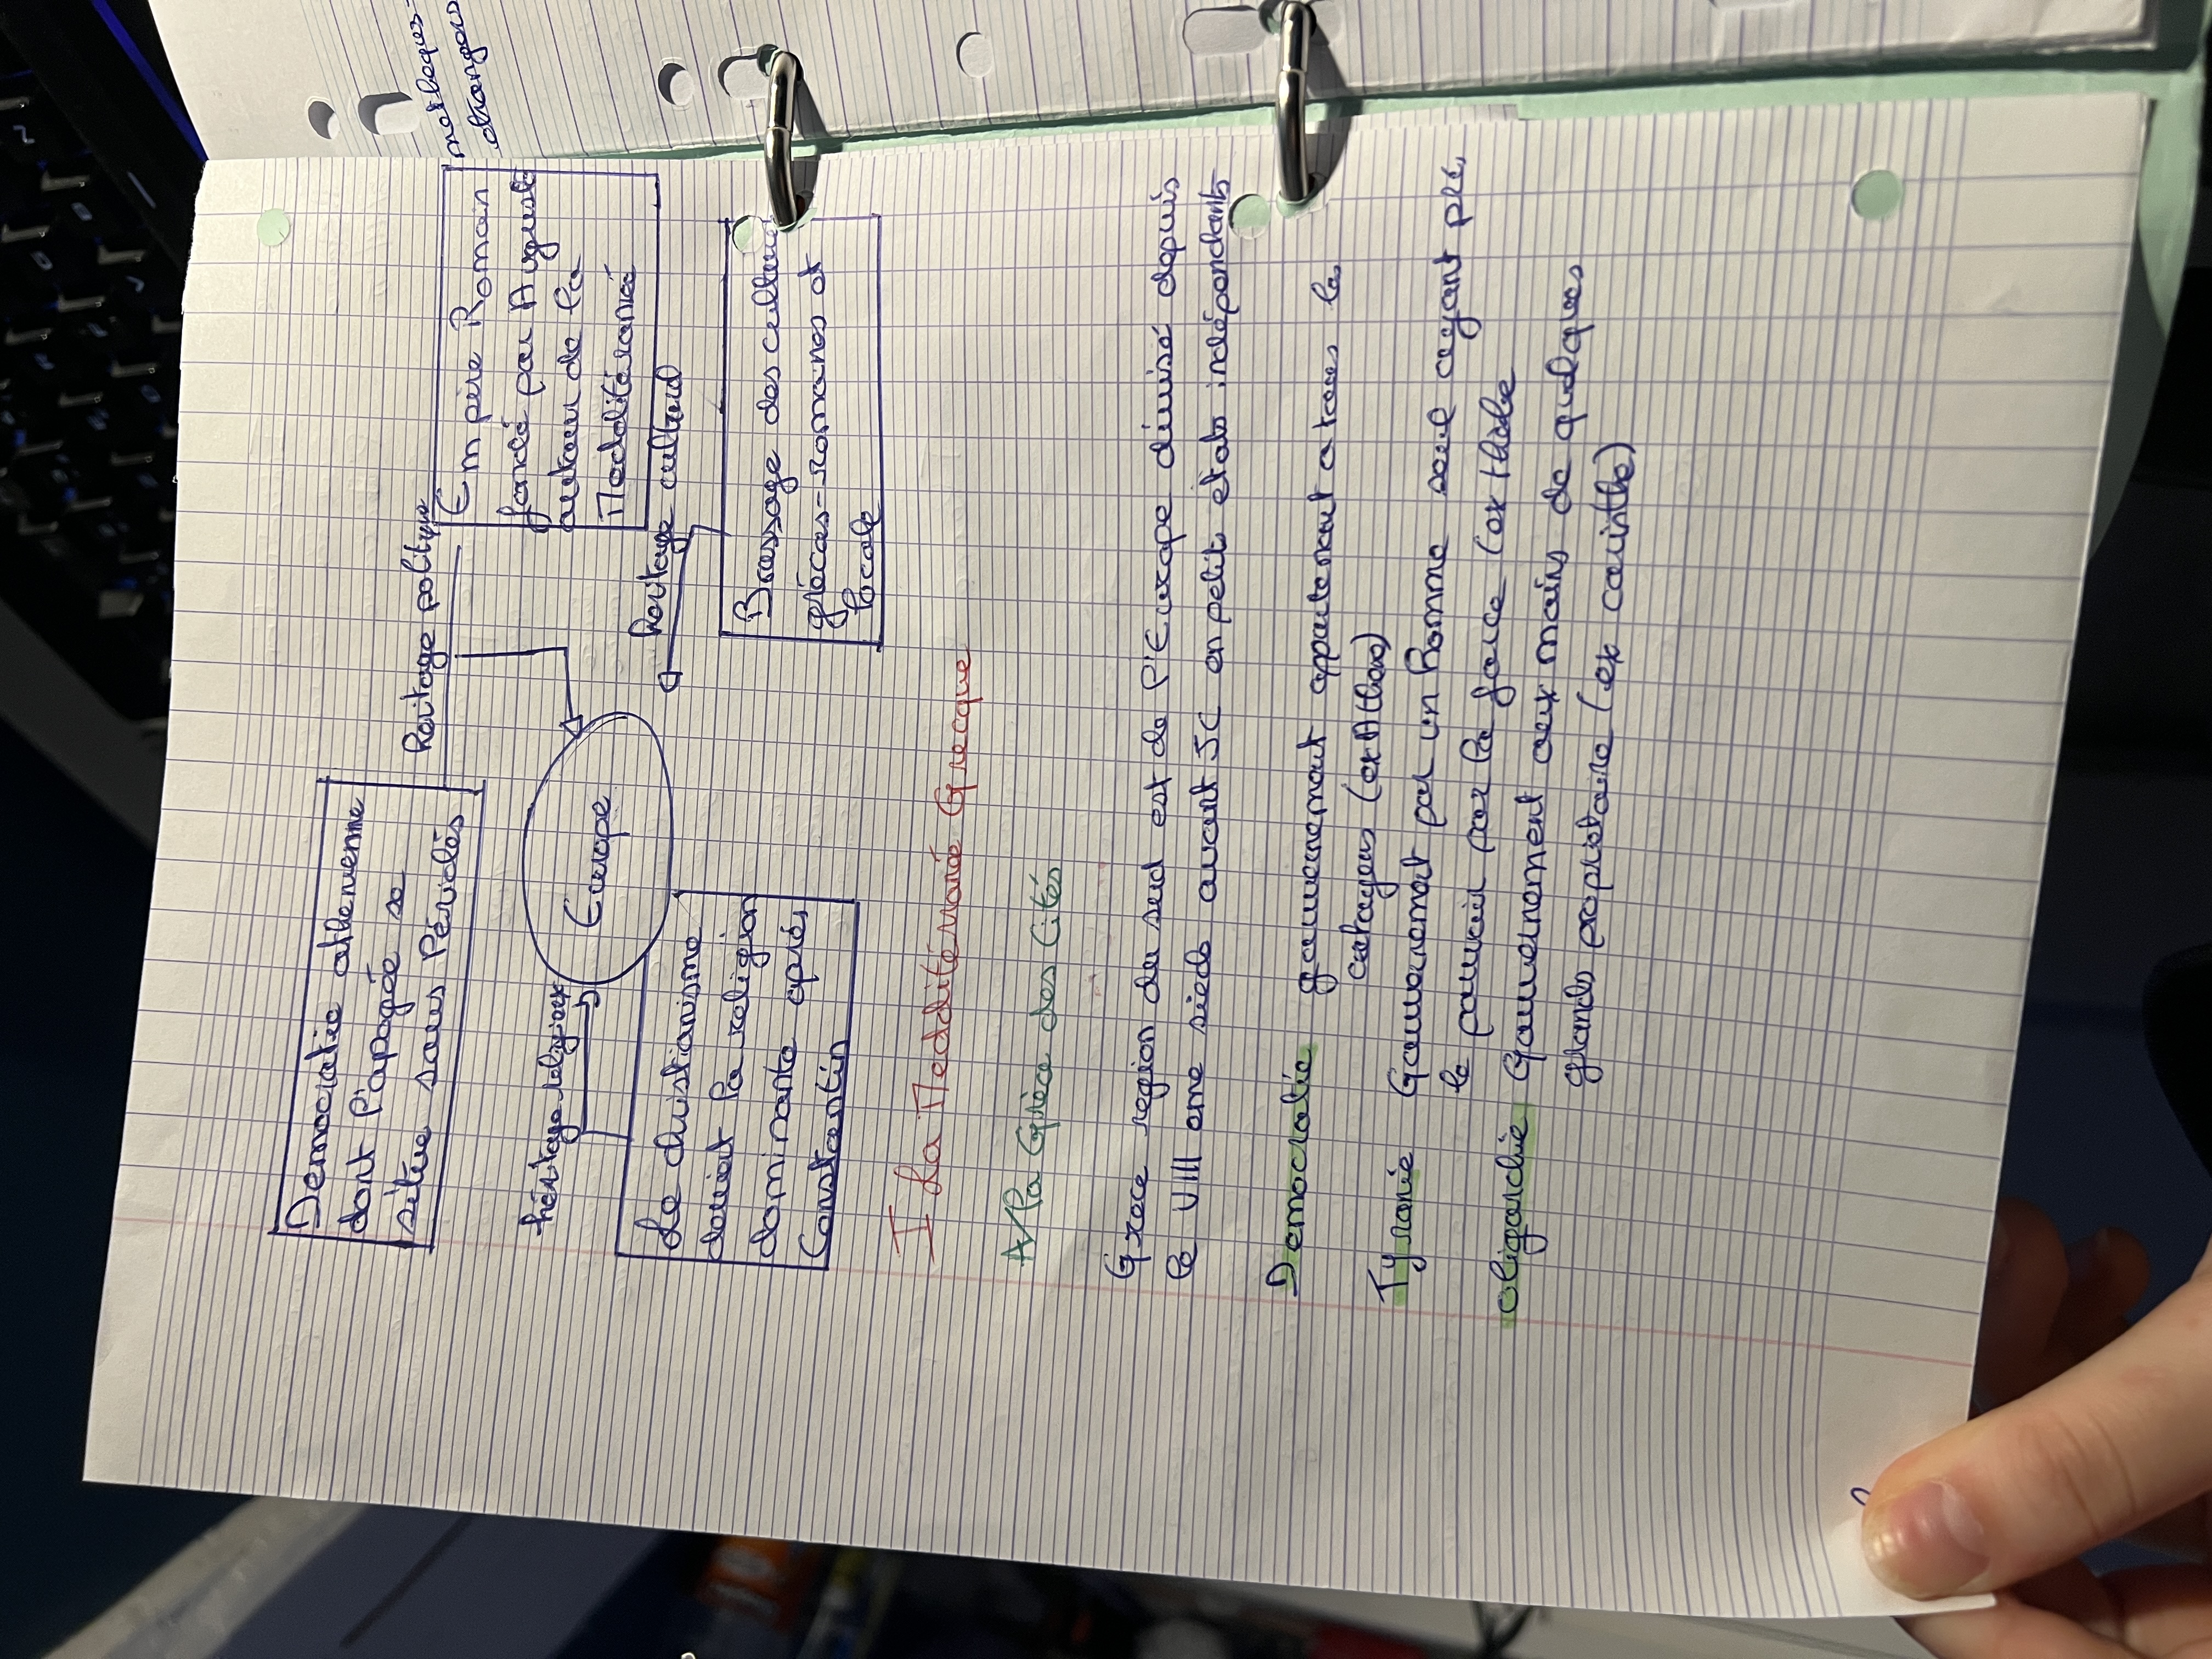 Democratie athenienne
dont l'apogée se
situe sous Périclès
heritage politique
Empire Romain
fondé par Auguste
autour de la
Meddéteranée
métèques-
étrangers
Europe
héritage religieux
heritage culturel
Le christianisme
devient la religion
dominante après
Constantin
Brassage des cultures
grécos-romaines et
locale
I La Meddéteranée Grecque
A/la Grèce des Cités
Grece region du sud est de l'Europe divisé depuis
le VIII eme siècle avant JC en petits états indépendants
Democratie gouvernement appartenant a tous les
citoyens (ex Athene)
Tyranie Gouvernement par un homme seul ayant pris
le pouvoir par la force (ex thèbe
oligarchie Gouvernement aux mains de quelques
grands propriétaire (ex corinthe)